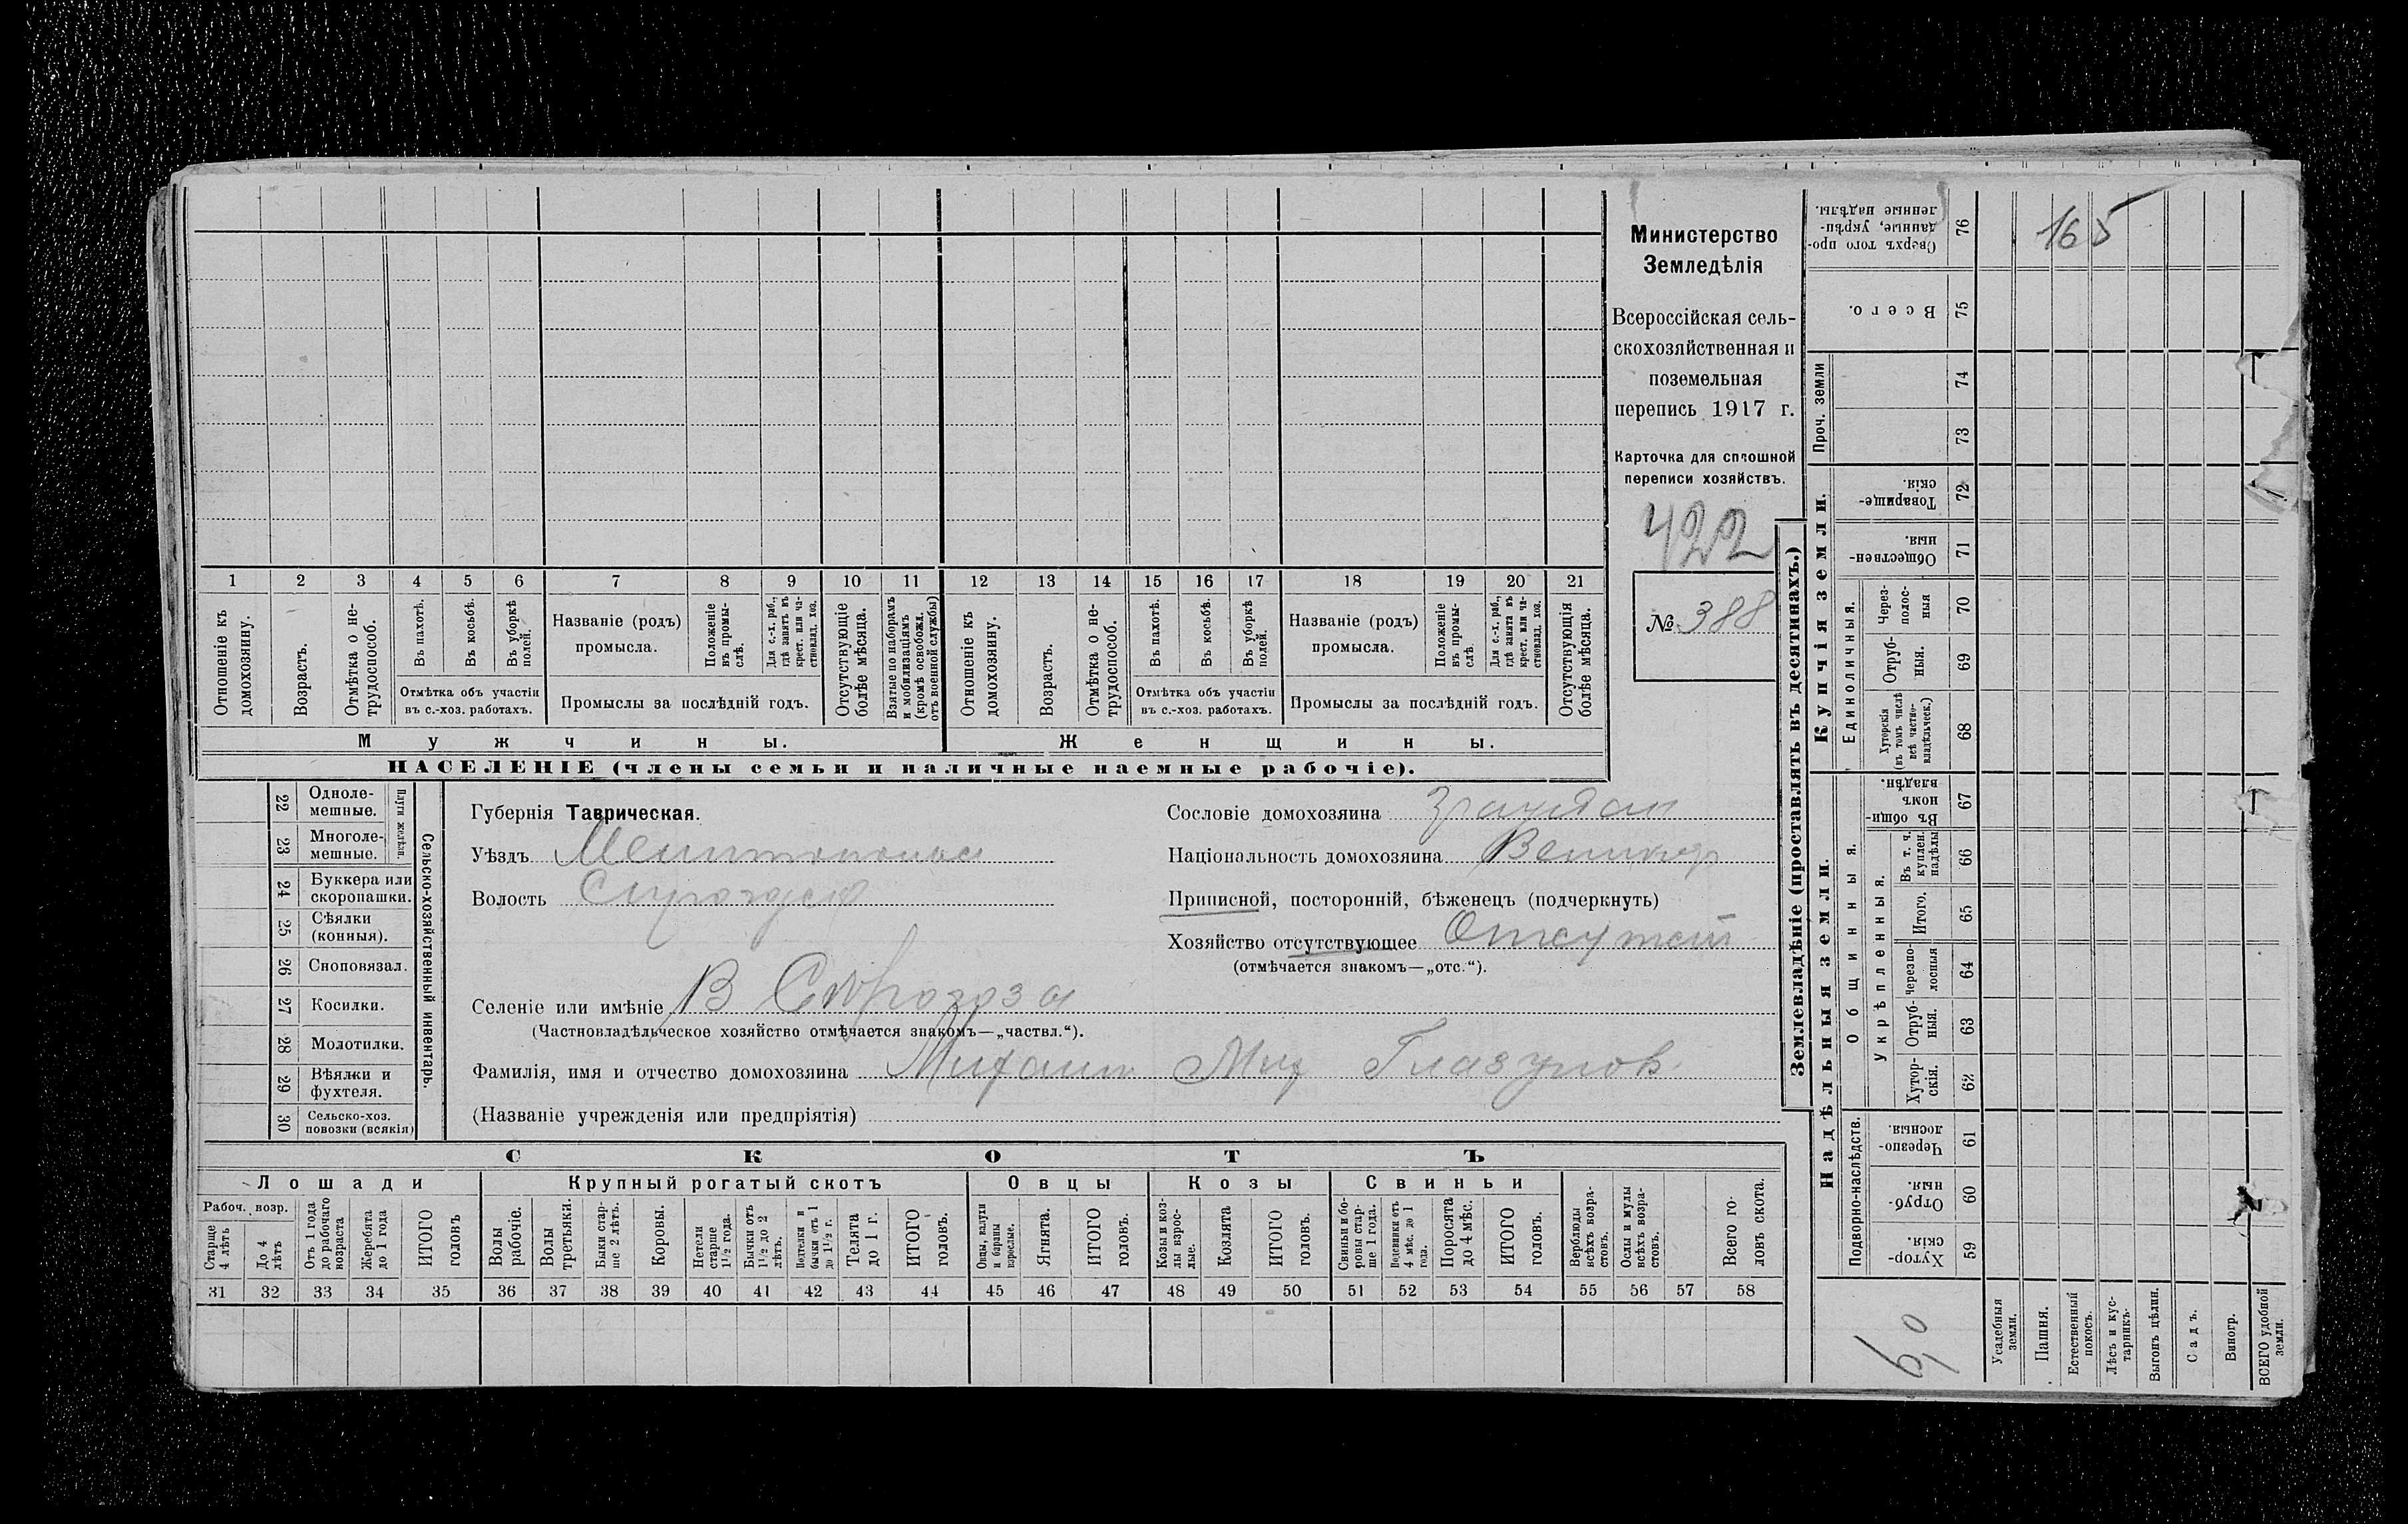 Министерство
Земледѣлія
Всероссійская сель-
скохозяйственная и
поземельная
перепись 1917 г.
Карточка для сплошной
переписи хозяйствъ.
422
№ 388
165
1 2 3 4 5 6 7 8 9 10 11 12 13 14 15 16 17 18 19 20 21
Отношеніе къ домохозяину.
Возрастъ.
Отмѣтка о не-трудоспособ.
Въ пахотѣ.
Въ косьбѣ.
Въ уборкѣ полей.
Отмѣтка объ участіи
въ с.-хоз. работахъ.
Названіе (родъ)
промысла.
Положеніе въ промы-слѣ.
Для с.-х. раб., гдѣ занятъ въ крест. или ча-стновлад. хоз.
Промыслы за послѣдній годъ.
Отсутствующіе болѣе мѣсяца.
Взятые по наборамъ и мобилизаціямъ (кромѣ освобожд. отъ военной службы)
Отношеніе къ домохозяину.
Возрастъ.
Отмѣтка о не-трудоспособ.
Въ пахотѣ.
Въ косьбѣ.
Въ уборкѣ полей.
Отмѣтка объ участіи
въ с.-хоз. работахъ.
Названіе (родъ)
промысла.
Положеніе въ промы-слѣ.
Для с.-х. раб., гдѣ занята въ крест. или ча-стновлад. хоз.
Промыслы за послѣдній годъ.
Отсутствующія болѣе мѣсяца.
Мужчины. Женщины.
НАСЕЛЕНІЕ (члены семьи и наличные наемные рабочіе).
22 Одноле-мешные.
23 Многоле-мешные.
Плуги желѣзн.
24 Буккера или скоропашки.
25 Сѣялки (конныя).
26 Сноповязал.
27 Косилки.
28 Молотилки.
29 Вѣялки и фухтеля.
30 Сельско-хоз. повозки (всякія)
Сельско-хозяйственный инвентарь.
Губернія Таврическая.
Уѣздъ
Волость
Селеніе или имѣніе В
(Частновладѣльческое хозяйство отмѣчается знакомъ—„частвл.“).
Фамилія, имя и отчество домохозяина Михаил Мих Глазунов
(Названіе учрежденія или предпріятія)
Сословіе домохозяина
Національность домохозяина Великор
Приписной, посторонній, бѣженецъ (подчеркнуть)
Хозяйство отсутствующее
(отмѣчается знакомъ—„отс.“).
СКОТЪ
Лошади Крупный рогатый скотъ Овцы Козы Свиньи
Рабоч. возр.
Старше 4 лѣтъ
До 4 лѣтъ
Отъ 1 года до рабочаго возраста
Жеребята до 1 года
ИТОГО головъ
Волы рабочіе.
Волы третьяки.
Быки стар-ше 2 лѣтъ.
Коровы.
Нетели старше 1½ года.
Бычки отъ 1½ до 2 лѣтъ.
бычки отъ 1 до 1½ г.
Телята до 1 г.
ИТОГО головъ.
Овцы, валухи и бараны взрослые.
Ягнята.
ИТОГО головъ.
Козы и коз-лы взрос-лые.
Козлята
ИТОГО головъ.
Свиньи и бо-ровы стар-ше 1 года.
Подсвинки отъ 4 мѣс. до 1 года.
Поросята до 4 мѣс.
ИТОГО головъ.
Верблюды всѣхъ возра-стовъ.
Ослы и мулы всѣхъ возра-стовъ.
Всего го-ловъ скота.
31 32 33 34 35 36 37 38 39 40 41 42 43 44 45 46 47 48 49 50 51 52 53 54 55 56 57 58
Землевладѣніе (проставлять въ десятинахъ.)
Надѣльныя земли. Купчія земли. Проч. земли
Подворно-наслѣдств.
Общинныя.
Укрѣпленныя.
Единоличныя.
Хутор-скія. 59
Отруб-ныя. 60
Черезпо-лосныя. 61
Хутор-скія. 62
Отруб-ныя. 63
Черезпо-лосныя 64
Итого. 65
Въ т. ч. куплен. надѣлы 66
Въ общи-номъ владѣн. 67
Хуторскія (въ томъ числѣ всѣ частно-владѣльческ.) 68
Отруб-ныя. 69
Через-полос-ныя 70
Обществен-ныя. 71
Товарище-скія. 72
73
74
Всего. 75
Сверхъ того про-данные, укрѣп-ленные надѣлы. 76
Усадебныя земли.
Пашня.
Естественный покосъ.
Лѣсъ и кус-тарникъ.
Выгонъ цѣлин.
Садъ.
Виногр.
ВСЕГО удобной земли.